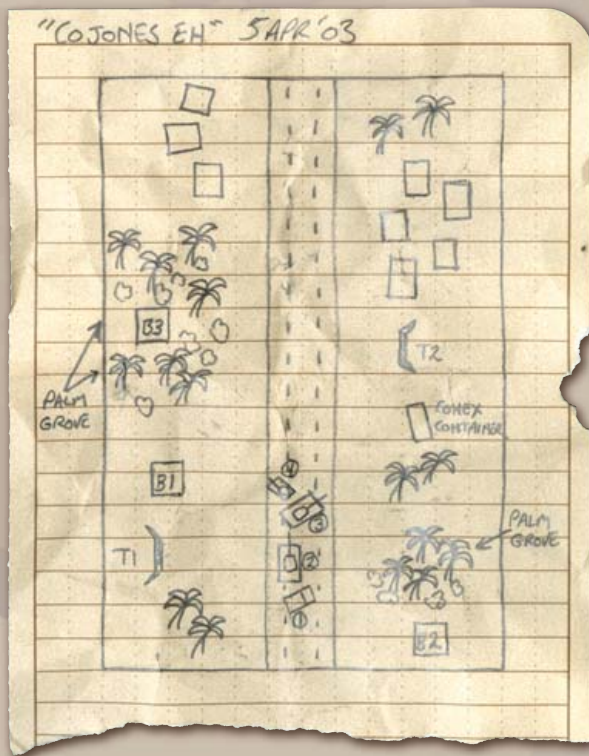 "COJONES EH" 5 APR '03
B3
T2
PALM
GROVE
CONEX
CONTAINER
B1
4
3
PALM
GROVE
T1
2
1
B2